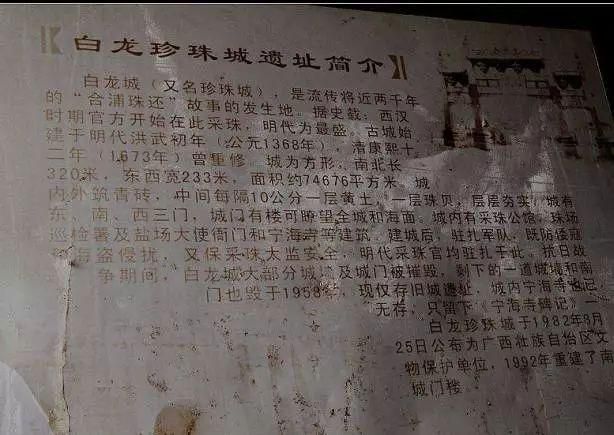 白龙珍珠城遗址简介
白龙城（又名珍珠城），是流传将近两千年
的“合浦珠还”故事的发生地。据史载：西汉
时期官方开始在此采珠，明代为最盛。古城始
建于明代洪武初年（公元1368年），清康熙十
二年（1673年）曾重修。城为方形，南北长
320米，东西宽233米，面积约74676平方米，城
内外筑青砖，中间每隔10公分一层黄土，一层珠贝，层层夯实，城有
东、南、西三门，城门有楼可瞭望全城和海面。城内有采珠公馆，珠场
巡检署及盐场大使衙门和宁海寺等建筑。建城后，驻扎军队，既防倭寇
海盗侵扰，又保采珠太监安全，明代采珠官均驻扎于此。抗日战
争期间，白龙城大部分城墙及城门被摧毁，剩下的一道城墙和南
门也毁于1958年，现仅存旧城遗址，城内宁海寺也已
无存，只留下《宁海寺碑记》
白龙珍珠城于1982年8月
25日公布为广西壮族自治区文
物保护单位，1992年重建了南
城门楼